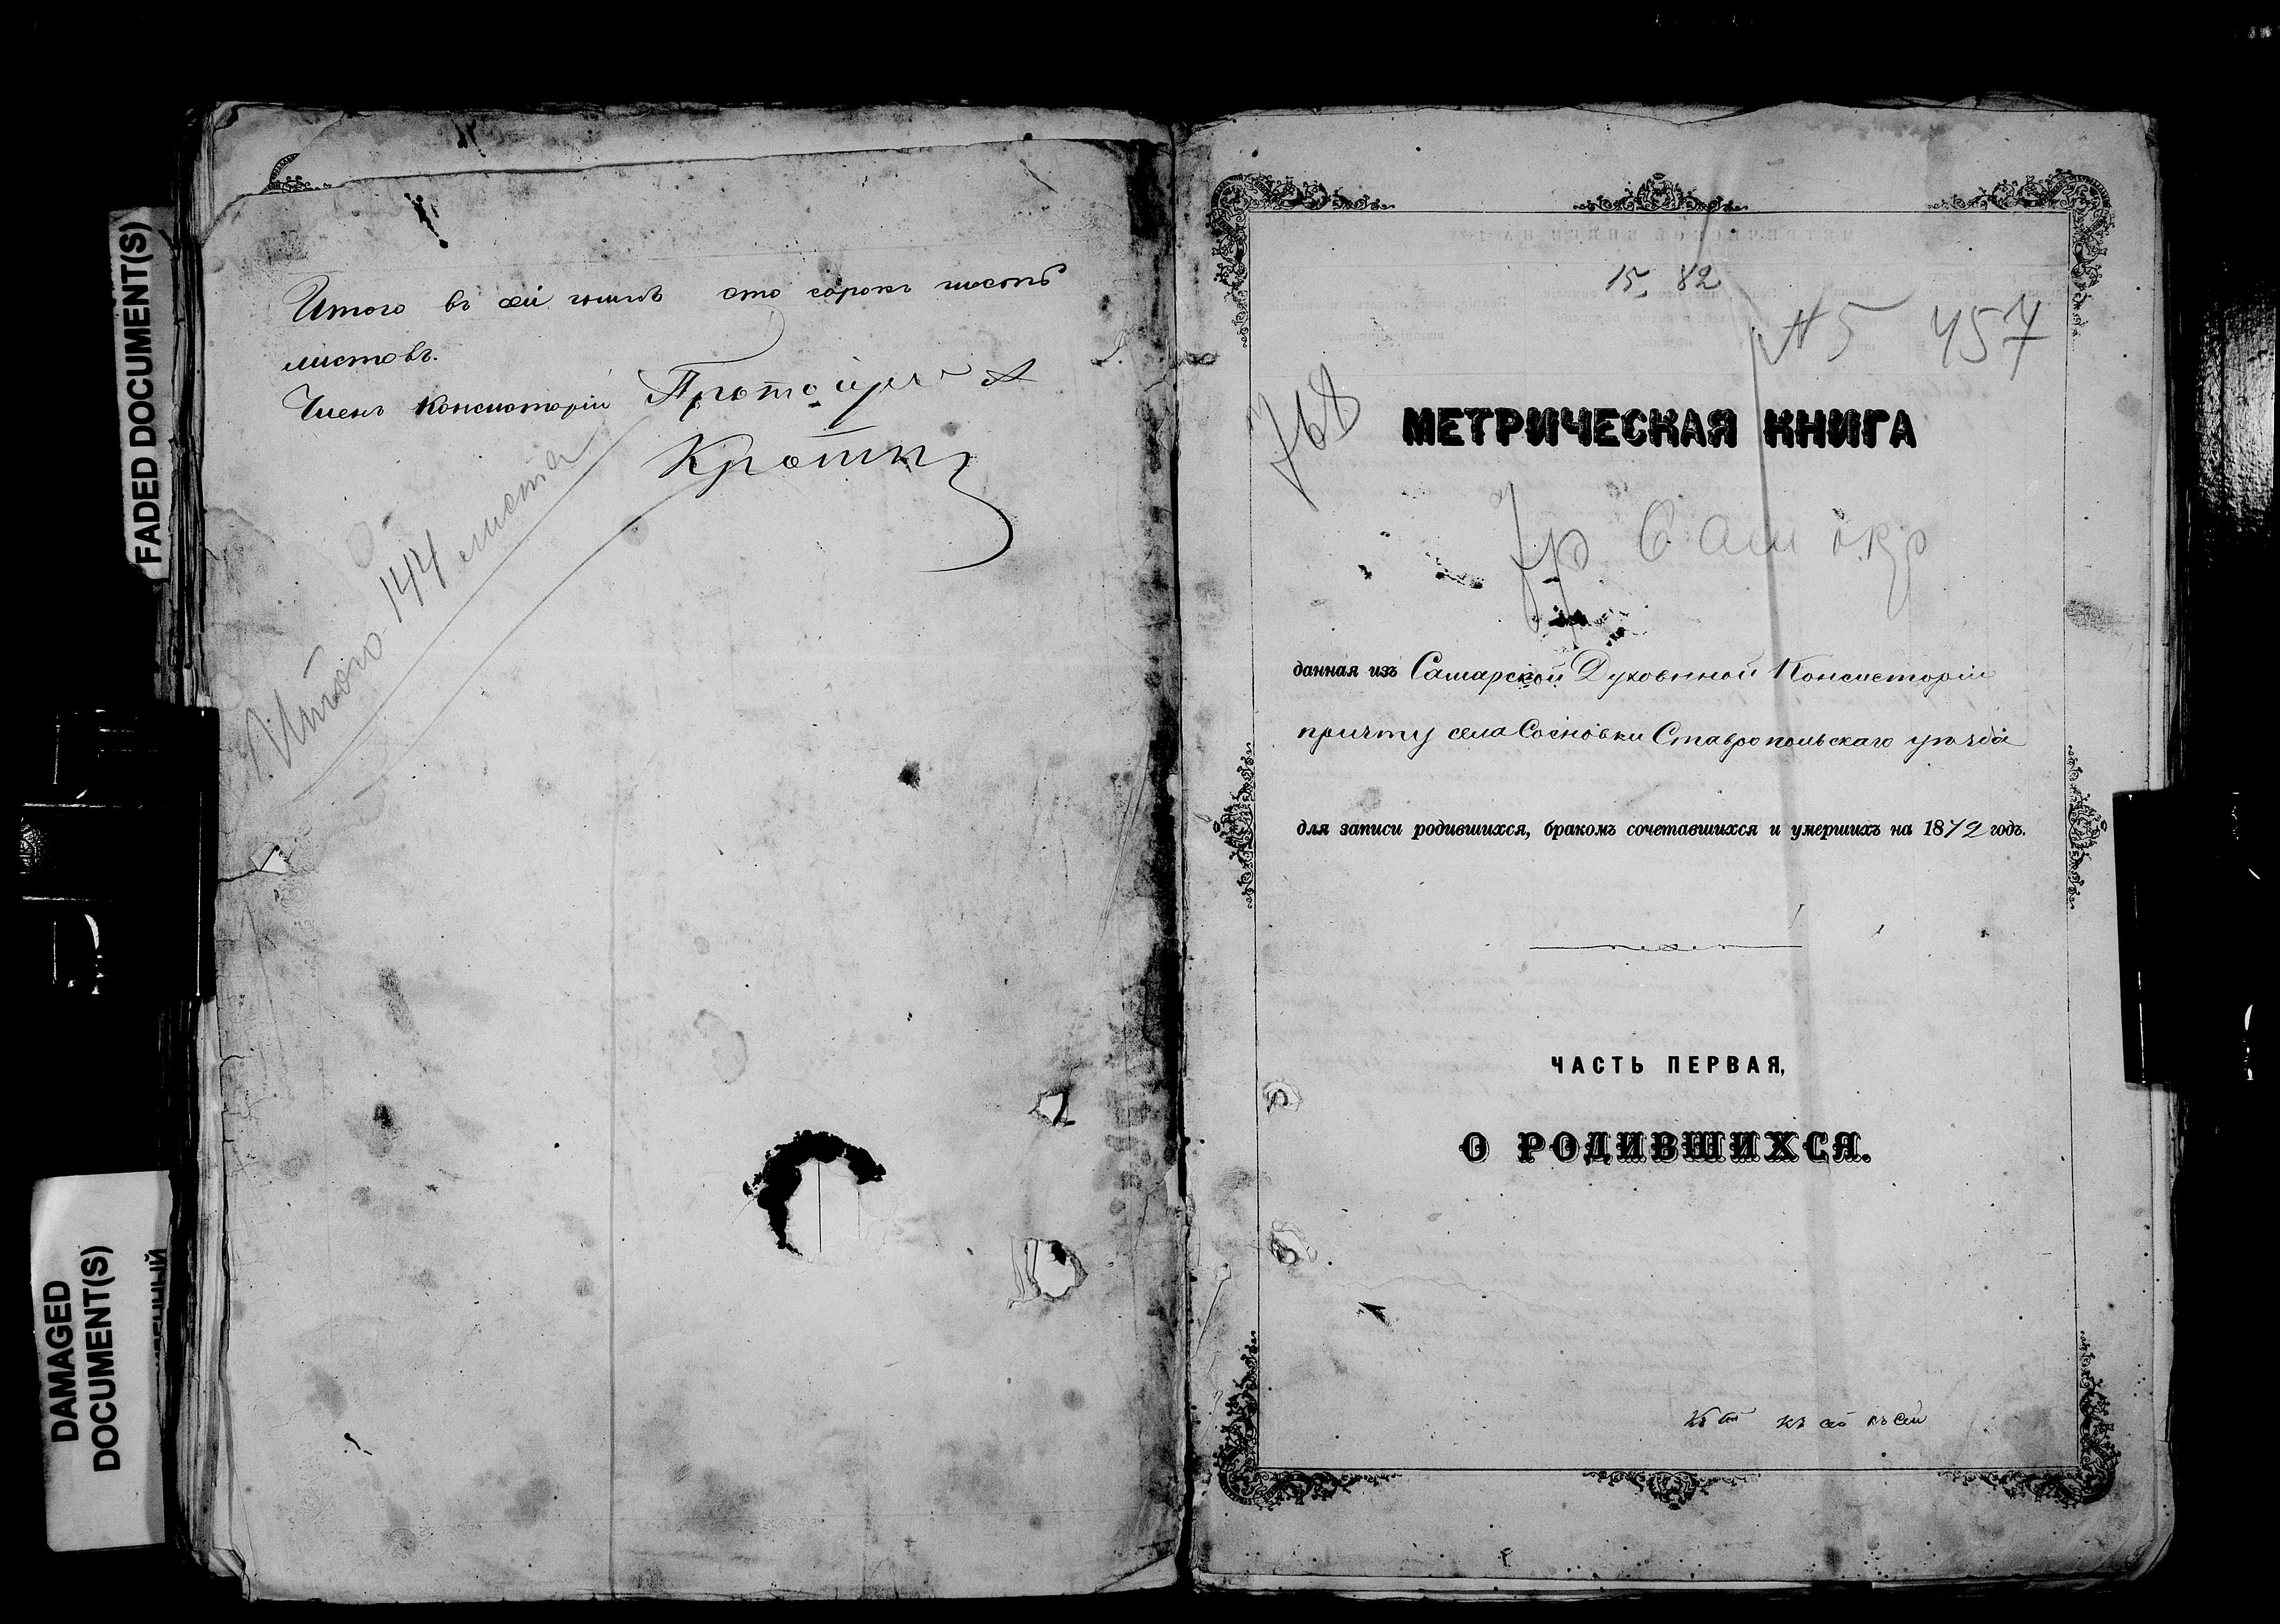 FADED DOCUMENT(S)
DAMAGED
DOCUMENT(S)
Итого въ сей книгѣ сто сорокъ шесть
листовъ.
Членъ Консисторіи Протоіерей А
Итого 144 листа
15 82
№ 5 457
768
МЕТРИЧЕСКАЯ КНИГА
данная изъ Самарской Духовнной Консисторіи
причту села Сосновки Ставропольскаго уѣзда
для записи родившихся, бракомъ сочетавшихся и умершихъ на 1872 годъ.
ЧАСТЬ ПЕРВАЯ,
О РОДИВШИХСЯ.